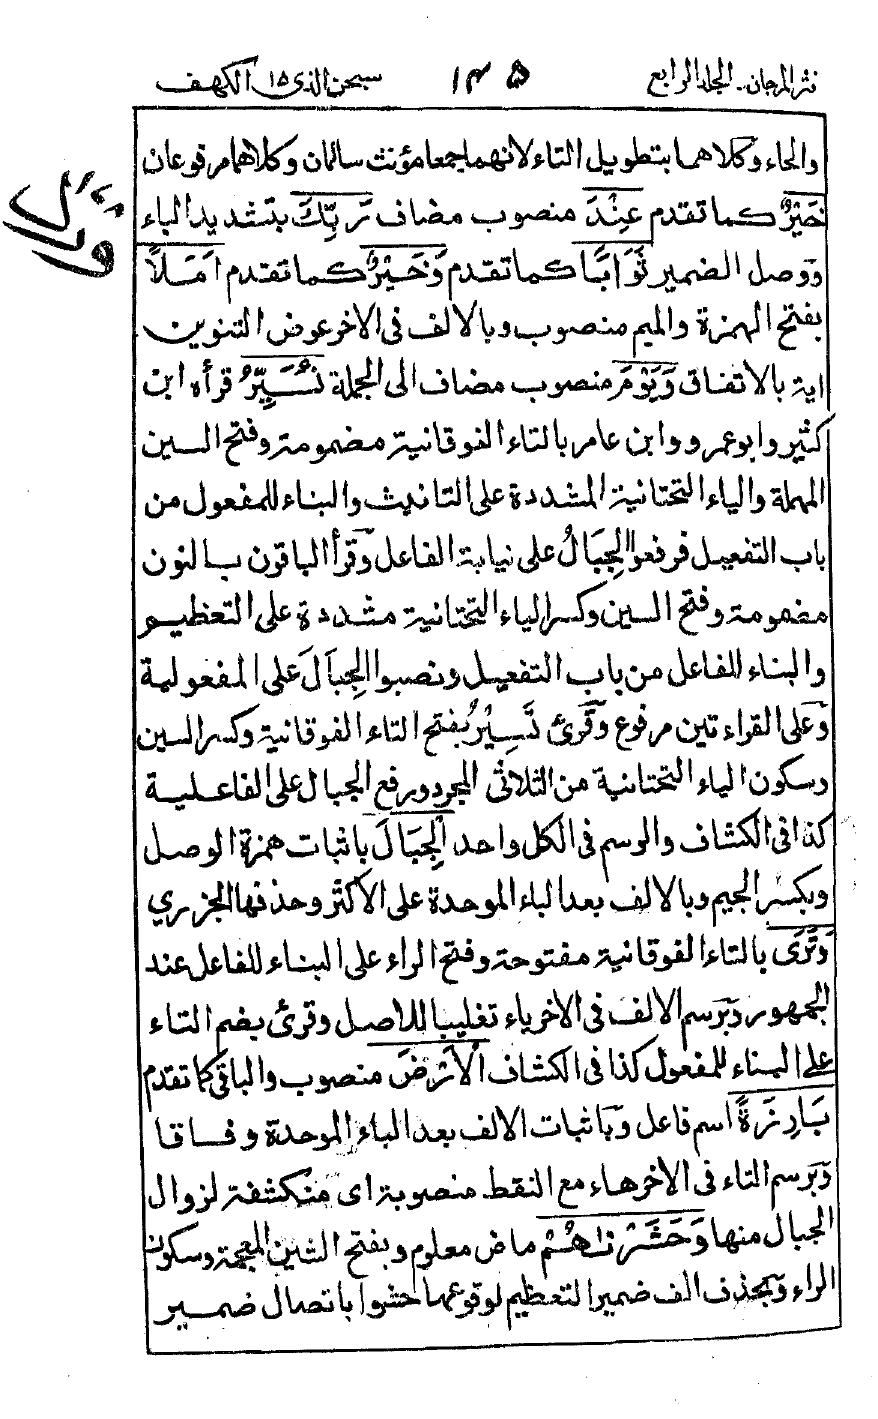 نثر المرجان۔ المجلد الرابع ١٣٥ سبحن الذى ١٥ الكهف
والحاء وكلاهما بتطويل التاء لانهما جمعا مؤنث سالمان وكلاهما مرفوعان
خَيْرٌ كما تقدم عِنْدَ منصوب مضاف رَبِّكَ بتشديد الباء
ووصل الضمير ثَوَابًا كما تقدم وَخَيْرٌ كما تقدم اَمَلًا
بفتح الهمزة والميم منصوب وبالالف فى الاخر عوض التنوين
اية بالاتفاق وَيَوْمَ منصوب مضاف الى الجملة نُسَيِّرُ قرأه ابن
كثير وابو عمرو وابن عامر بالتاء الفوقانية مضمومة وفتح السين
المهملة والياء التحتانية المشددة على التانيث والبناء للمفعول من
باب التفعيل فرفعوا الجِبَالُ على نيابة الفاعل وقرأ الباقون بالنون
مضمومة وفتح السين وكسر الياء التحتانية مشددة على التعظيم
والبناء للفاعل من باب التفعيل ونصبوا الجِبَالَ على المفعولية
وعلى القراءتين مرفوع وقرئ تَسِيْرُ بفتح التاء الفوقانية وكسر السين
وسكون الياء التحتانية من الثلاثى المجرد ورفع الجبال على الفاعلية
كذا فى الكشاف والرسم فى الكل واحد الْجِبَالَ باثبات همزة الوصل
وبكسر الجيم وبالالف بعد الباء الموحدة على الاكثر وحذفها الجزري
وَتَرَى بالتاء الفوقانية مفتوحة وفتح الراء على البناء للفاعل عند
الجمهور وبرسم الالف فى الاخر ياء تغليبا للاصل وقرئ بضم التاء
على البناء للمفعول كذا فى الكشاف الْاَرْضَ منصوب والباقى كما تقدم
بَارِزَةً اسم فاعل وباثبات الالف بعد الباء الموحدة وفاقا
وبرسم التاء فى الاخر هاء مع النقط منصوبة اى منكشفة لزوال
الجبال منها وَحَشَرْنٰهُمْ ماض معلوم وبفتح الشين المعجمة وسكون
الراء وبحذف الف ضمير التعظيم لوقوعها حشوا باتصال ضمير